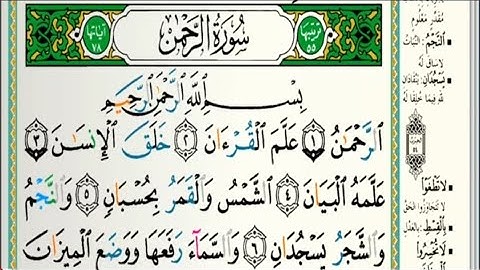 ترتيبها ٥٥
سُورَةُ الرَّحْمٰن
آياتها ٧٨
بِسْمِ اللَّهِ الرَّحْمَٰنِ الرَّحِيمِ
الرَّحْمَٰنُ ١ عَلَّمَ الْقُرْءَانَ ٢ خَلَقَ الْإِنسَٰنَ ٣
عَلَّمَهُ الْبَيَانَ ٤ الشَّمْسُ وَالْقَمَرُ بِحُسْبَانٍ ٥ وَالنَّجْمُ
وَالشَّجَرُ يَسْجُدَانِ ٦ وَالسَّمَآءَ رَفَعَهَا وَوَضَعَ الْمِيزَانَ
مُقدَّر مَعْلوم
النَّجْمُ: النّبات
لا ساق له
يَسْجُدَانِ: يَنْقادان
لله فيما خُلِقا له
لَا تَطْغَوْا
لا تتجاوزوا الحق
بِالْقِسْطِ: بالعدل
لَا تُخْسِرُوا